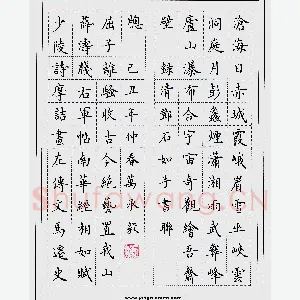 滄海日赤城霞峨眉雪巫峽雲
洞庭月彭蠡煙瀟湘雨武彝峰
廬山瀑布合宇宙奇觀繪吾齋
壁 錄清鄧石如書聯
少陵詩摩詰畫左傳文馬遷史
薛濤牋右軍帖南華經相如賦
屈子離騷收古今絕藝置我山
窓 己丑年仲春萬
Shufawang.CN